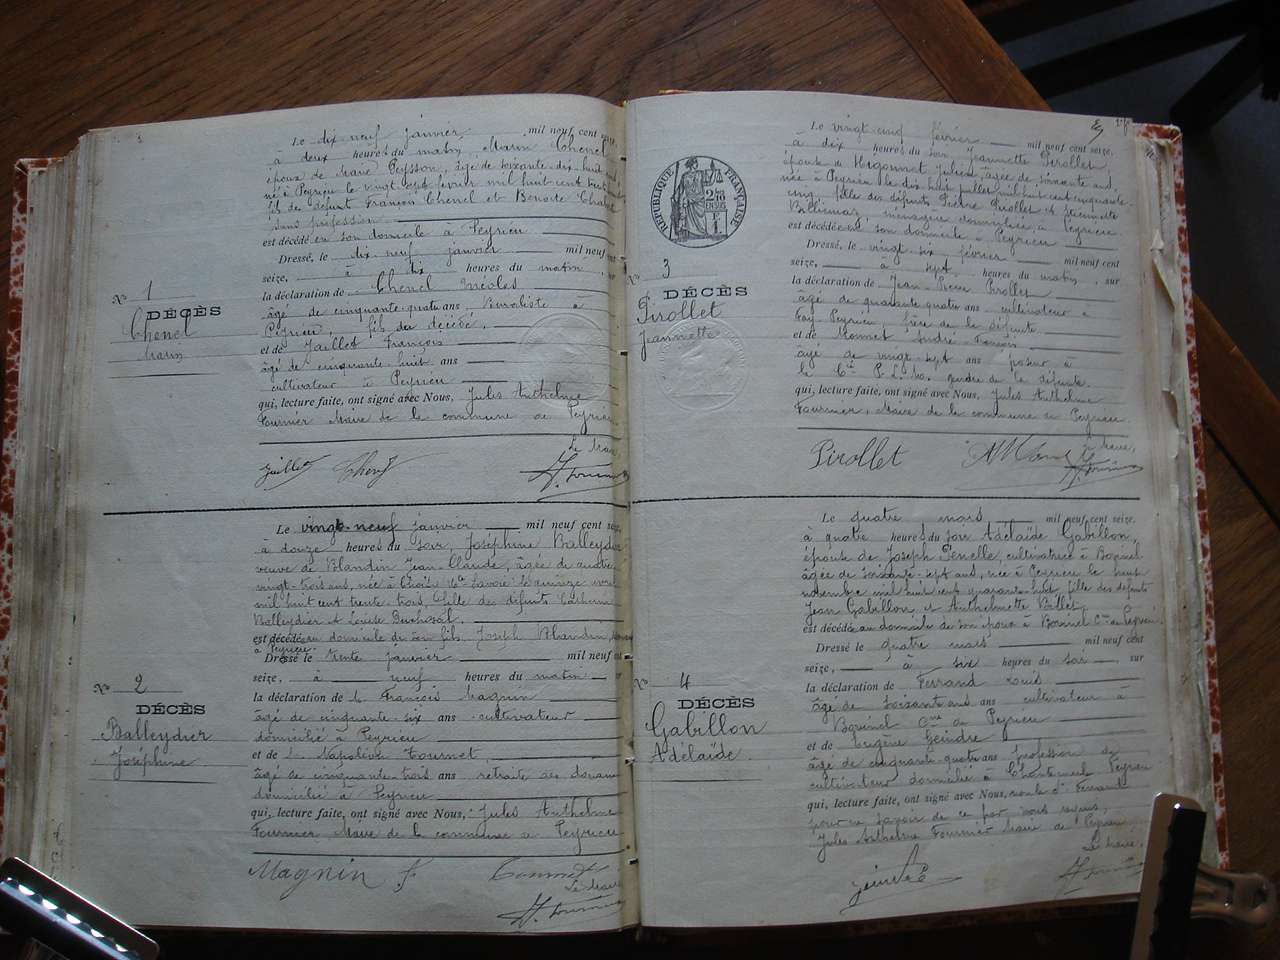 Le dix neuf janvier mil neuf cent seize,
à deux heures du matin, Marin Chenel
époux de Marie Peysson, âgé de soixante-dix-huit ans
né à Peyrieu le vingt sept février mil huit cent trente
fils de défunt François Chenel et Benoite
sans profession
est décédé en son domicile à Peyrieu
Dressé, le dix neuf janvier mil neuf cent
seize, à dix heures du matin, sur
la déclaration de Chenel Nicolas
âgé de cinquante quatre ans à
Peyrieu, fils du décédé,
et de Jaillet François
âgé de cinquante huit ans
cultivateur à Peyrieu
qui, lecture faite, ont signé avec Nous, Jules Anthelme
Fournier Maire de la commune de Peyrieu
Le Maire,
Jaillet Chenel
Nº 1
DÉCÈS
Chenel
Marin
Le vingt-neuf janvier mil neuf cent seize,
à douze heures du soir, Joséphine Balleydier
veuve de Blandin Jean-Claude, âgée de quatre
vingt-trois ans, née à
mil huit cent trente-trois, fille des défunts Catherin
Balleydier et Louise
est décédée au domicile de son fils, Joseph Blandin,
à Peyrieu.
Dressé le trente janvier mil neuf cent
seize, à neuf heures du matin sur
la déclaration de François Magnin
âgé de cinquante-six ans cultivateur
domicilié à Peyrieu
et de Napoléon Tournet,
âgé de cinquante trois ans retraité des douanes
domicilié à Peyrieu
qui, lecture faite, ont signé avec Nous, Jules Anthelme
Fournier Maire de la commune de Peyrieu
Magnin F.
Le Maire
Nº 2
DÉCÈS
Balleydier
Joséphine
Le vingt-cinq février mil neuf cent seize,
à dix heures du soir Jeannette Pirollet
épouse de Hugonnet Julien, âgée de soixante ans,
née à Peyrieu le dix huit juillet mil huit cent cinquante-
cinq fille des défunts Pierre Pirollet et
ménagère domiciliée à Peyrieu
est décédée en son domicile à Peyrieu
Dressé, le vingt six février mil neuf cent
seize, à sept heures du matin, sur
la déclaration de Jean-Pierre Pirollet
âgé de quarante quatre ans cultivateur à
Peyrieu, frère de la défunte
et de André
âgé de vingt-sept ans poseur à
la Cie P.L.M. gendre de la défunte.
qui, lecture faite, ont signé avec Nous, Jules Anthelme
Fournier, Maire de la commune de Peyrieu
Le Maire,
Pirollet
RÉPUBLIQUE FRANÇAISE
Nº 3
DÉCÈS
Pirollet
Jeannette
Le quatre mars mil neuf cent seize.
à quatre heures du soir Adélaïde Gabillon,
épouse de Joseph cultivatrice à
âgée de soixante-sept ans, née à Peyrieu le huit
novembre mil huit cent quarante-huit, fille des défunts
Jean Gabillon et Anthelmette
est décédée au domicile de son époux à Cne de Peyrieu.
Dressé le quatre mars mil neuf cent
seize, à six heures du soir, sur
la déclaration de Ferrand Louis
âgé de soixante ans cultivateur à
Cne de Peyrieu
et de Eugène Geindre
âgé de cinquante-quatre ans profession de
cultivateur domicilié à Peyrieu
qui, lecture faite, ont signé avec Nous,
Jules Anthelme Fournier Maire de Peyrieu
Le Maire,
Nº 4
DÉCÈS
Gabillon
Adélaïde